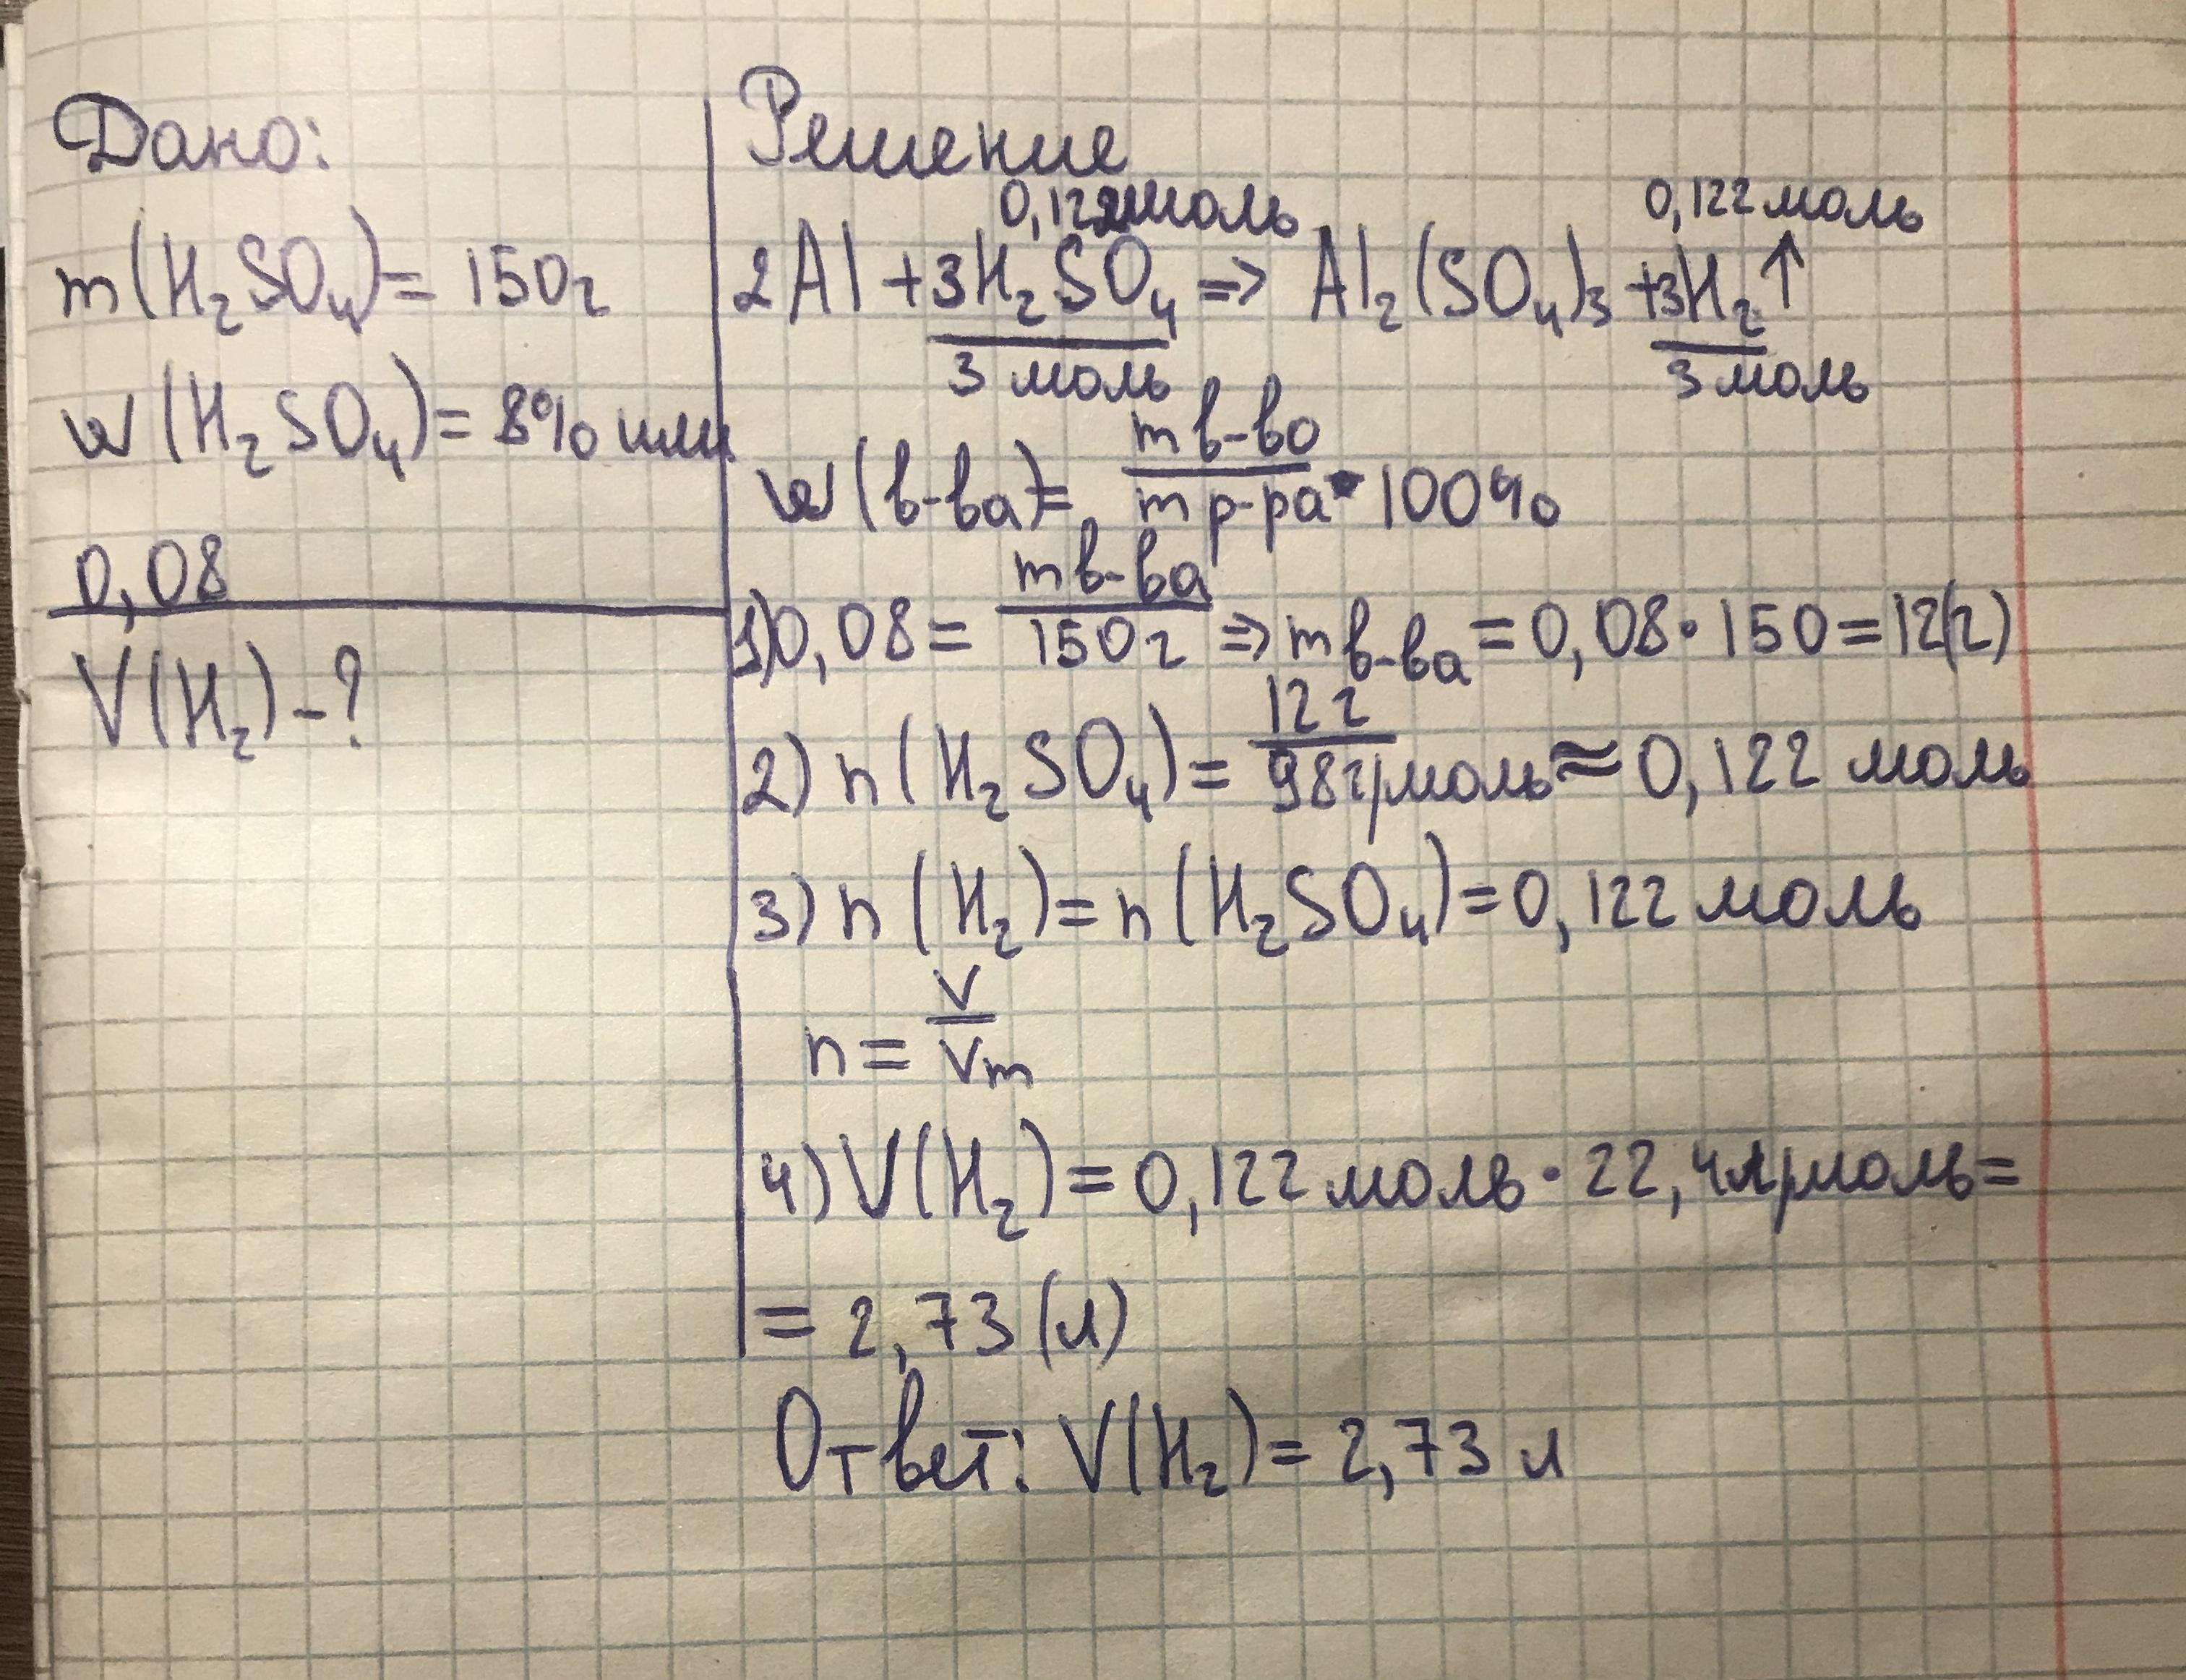 Дано:
m(H₂SO₄)= 150г
w(H₂SO₄)= 8% или
0,08
V(H₂)-?
Решение
0,122моль 0,122моль
2Al+3H₂SO₄=>Al₂(SO₄)₃+3H₂↑
3 моль 3моль
w(в-ва)= m в-во / m р-ра • 100%
1)0,08= m в-ва / 150г => m в-ва = 0,08•150=12(г)
2) n(H₂SO₄)= 12г / 98г/моль ≈ 0,122 моль
3) n(H₂)=n(H₂SO₄)=0,122моль
n= V / Vm
4) V(H₂)=0,122моль•22,4л/моль=
= 2,73(л)
Ответ: V(H₂)= 2,73 л